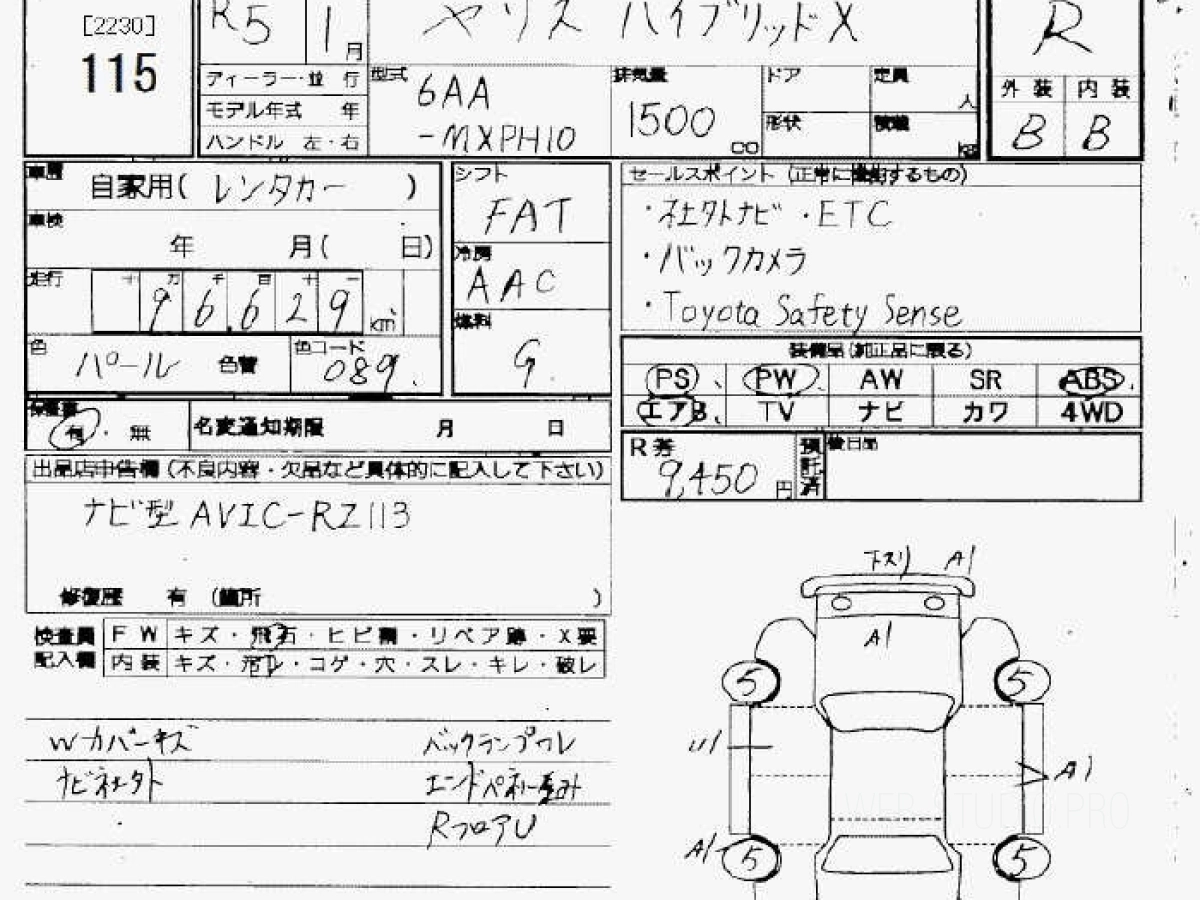 [2230]
115
R5 1月
ヤリス ハイブリッドX
R
ディーラー・並行
モデル年式 年
ハンドル 左・右
型式 6AA
-MXPH10
排気量
1500 cc
ドア
形状
定員 人
積載 kg
外装 内装
B B
車歴 自家用( レンタカー )
車検 年 月( 日)
走行 十 万 千 百 十 一
96,629 km
色 パール 色替
色コード 089.
シフト
FAT
冷房
AAC
燃料
G.
セールスポイント (正常に機動するもの)
・社外ナビ ・ETC
・バックカメラ
・Toyota Safety Sense
装備品(純正品に限る)
PS、 PW AW SR ABS
エアB、 TV ナビ カワ 4WD
保証書
有・無
名変通知期限 月 日
R券
9,450 円
預託済
後日品
出品店申告欄(不良内容・欠品など具体的に記入して下さい)
ナビ型 AVIC-RZ113
修復歴 有 (箇所 )
検査員
記入欄
FW キズ・飛石・ヒビ割・リペア跡・X要
内装 キズ・汚レ・コゲ・穴・スレ・キレ・破レ
Wカバーキズ
バックランプワレ
ナビネェクト
エンドパネル歪み
RフロアU
下スリ A1
A1
5 5
U1
A1
A1
5 5
WEB STUDIO PRO